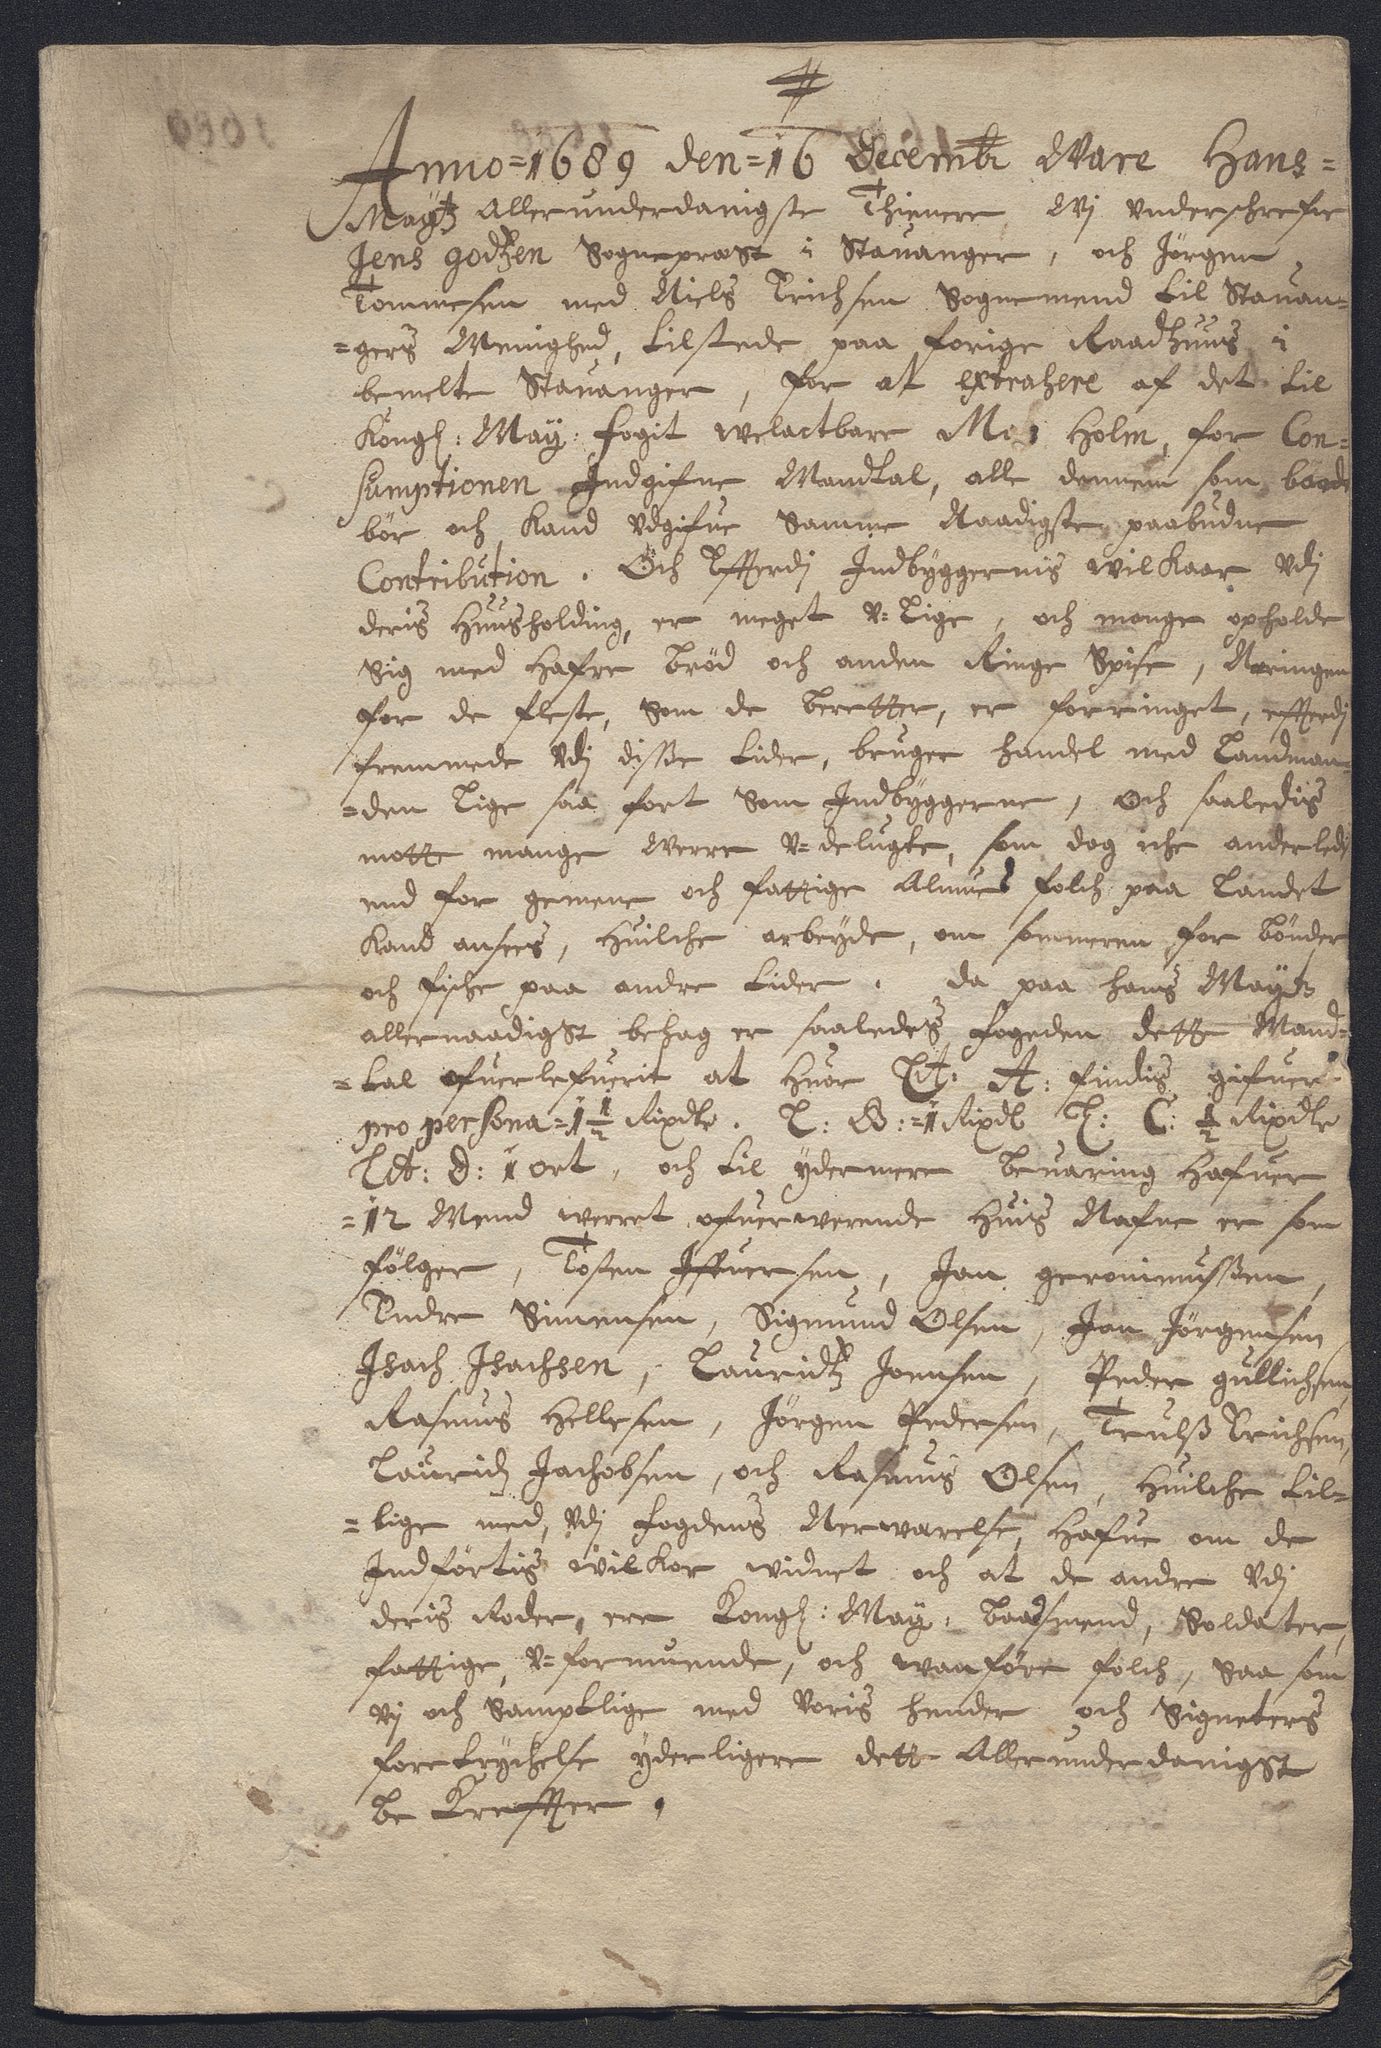 Anno=1689 den=16 Decembr Ware Hans=
Maytz Allerunderdanigste Thienere Wj underschrefne
Jens Godtzen Sogneprest i Stauanger, och Jörgen
Tommesen med Niels Erichsen Sognemend til Stauan=
=gers Menighed, tilstede paa forige Raadhuus i
bemelte Stauanger, for at extrahere af det til
Kongl: May: fogit welactbare Holm, for Con=
sumptionen Indgifne Mandtal, alle dennem som baade
bör och kand Udgifue Samme Naadigste paabudne
Contribution. Och Effterdj Indbyggernis wilkaar Udj
deris Huusholding, er meget U=lige, och mange opholde
Sig med Hafre Bröd och anden Ringe Spise, Neringen
for de fleste, Som de beretter, er forringet, effterdj
fremmede Udj disse tider, bruger handel med Landman=
=den Lige saa fort Som Indbyggerne, Och saaledis
motte mange Werre U=delugte, som dog iche anderledis
end for gemene och fattige Almues folch paa Landet
kand ansees, Huilche arbeyde, om sommeren for Bönder
och fische paa andre tider. da paa hans Maytz
allernaadigst behag er saaledes fogeden dette Mand=
=tal ofuerlefuerit at Huor Lit: A: findis gifuer
pro persona=1½ Rixdlr. L: B:=1 Rixdl L: C: ½ Rixdlr
Lit: D: 1 ort, och til ydermere Beuaring Hafuer
=12 Mend werret ofuerwerende Huis Nafne er som
fölger, Tosten Iffuersen, Jan Geronimussen,
Endre Simensen, Sigmund Olsen, Jan Jörgensen
Isach Isachsen, Lauridtz Joensen, Peder Gullichsen,
Rasmus Hellesen, Jörgen Pedersen, Trulss Erichsen,
Laurids Jachobsen, och Rasmus Olsen, Huilche til=
=lige med, Udj fogdens Nerwarelse, Hafue om de
Indförtis wilkor widnet och at de andre Udj
deris Roder, ere Kongl: May: Baadsmend, Soldater,
fattige, U=formuende, och wanföre folch, Saa som
Wj och Samptlige med Voris hender och Signeters
foretrychelse yderligere dette Allerunderdanigst
Be Kreffter.